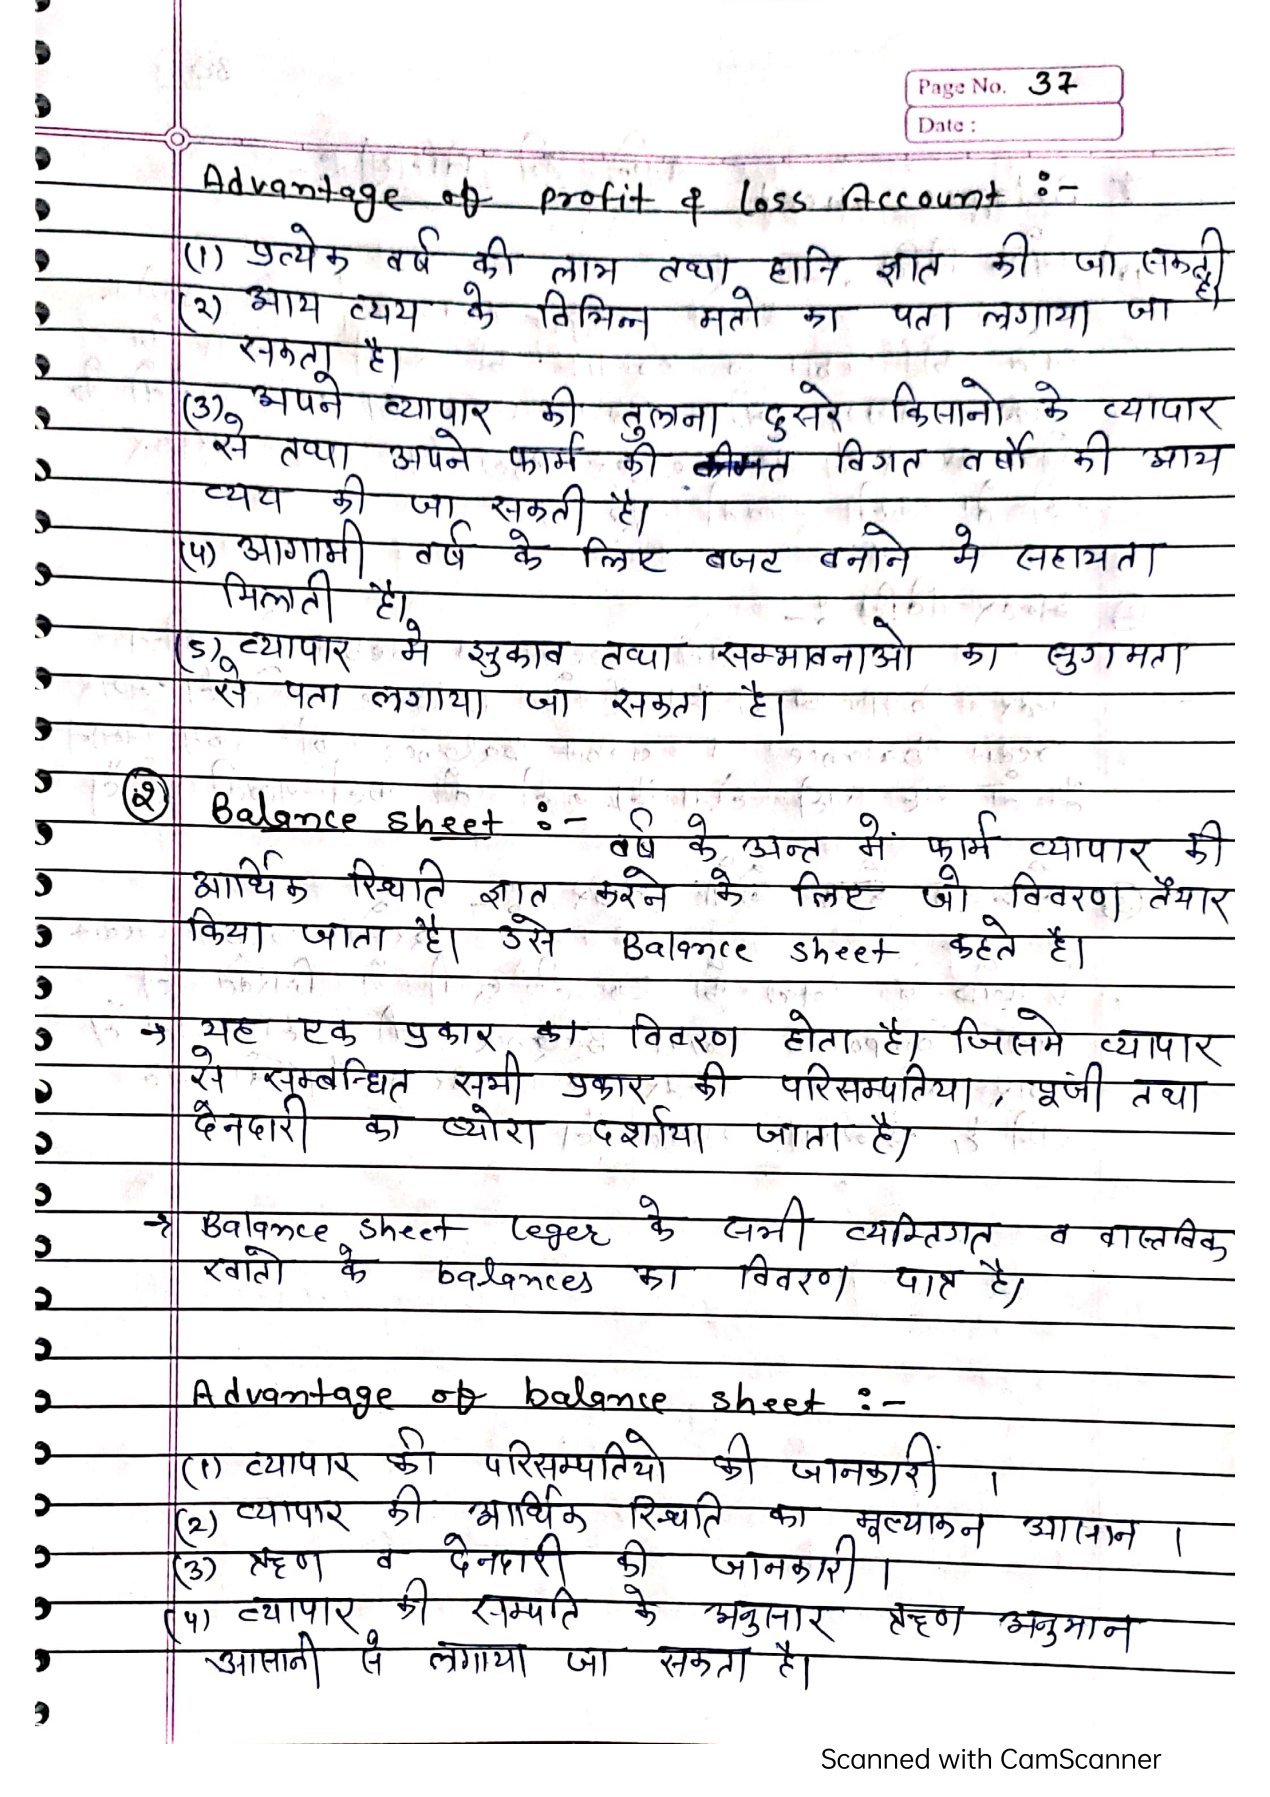 Page No. 37
Date :
Advantage of profit & loss Account :-
(1) प्रत्येक वर्ष की लाभ तथा हानि ज्ञात की जा सकती है।
(२) आय व्यय के विभिन्न मतो का पता लगाया जा
सकता है।
(3) अपने व्यापार की तुलना दुसरे किसानो के व्यापार
से तथा अपने फार्म की विगत वर्षो की आय
व्यय की जा सकती है।
(५) आगामी वर्ष के लिए बजट बनाने मे सहायता
मिलती है।
(5) व्यापार मे झुकाव तथा सम्भावनाओ का सुगमता
से पता लगाया जा सकता है।
② Balance sheet :-
वर्ष के अन्त में फार्म व्यापार की
आर्थिक स्थिति ज्ञात करने के लिए जो विवरण तैयार
किया जाता है। उसे Balance sheet कहते है।
→ यह एक प्रकार का विवरण होता है। जिसमे व्यापार
से सम्बन्धित सभी प्रकार की परिसम्पतिया, पूंजी तथा
देनदारी का ब्योरा दर्शाया जाता है।
→ Balance sheet leger के सभी व्यक्तिगत व वास्तविक
खातो के balances का विवरण पात्र है।
Advantage of balance sheet :-
(1) व्यापार की परिसम्पतियो की जानकारी ।
(2) व्यापार की आर्थिक स्थिति का मूल्याकन आसान ।
(3) ऋण व देनदारी की जानकारी ।
(५) व्यापार की सम्पति के अनुसार ऋण अनुमान
आसानी से लगाया जा सकता है।
Scanned with CamScanner